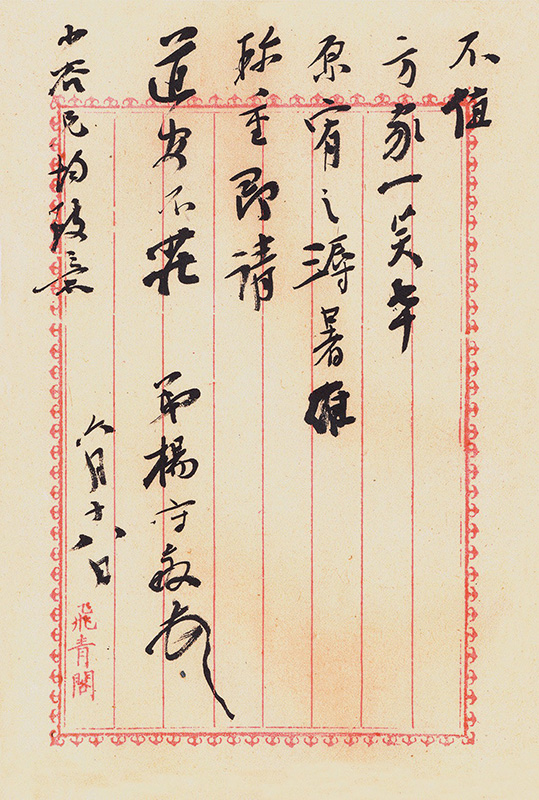 不值
方家一笑幸
原宥之溽暑唯
珍重即請
道安不莊 弟楊守敬頓
六月十八日
小兄均致意
飛青閣